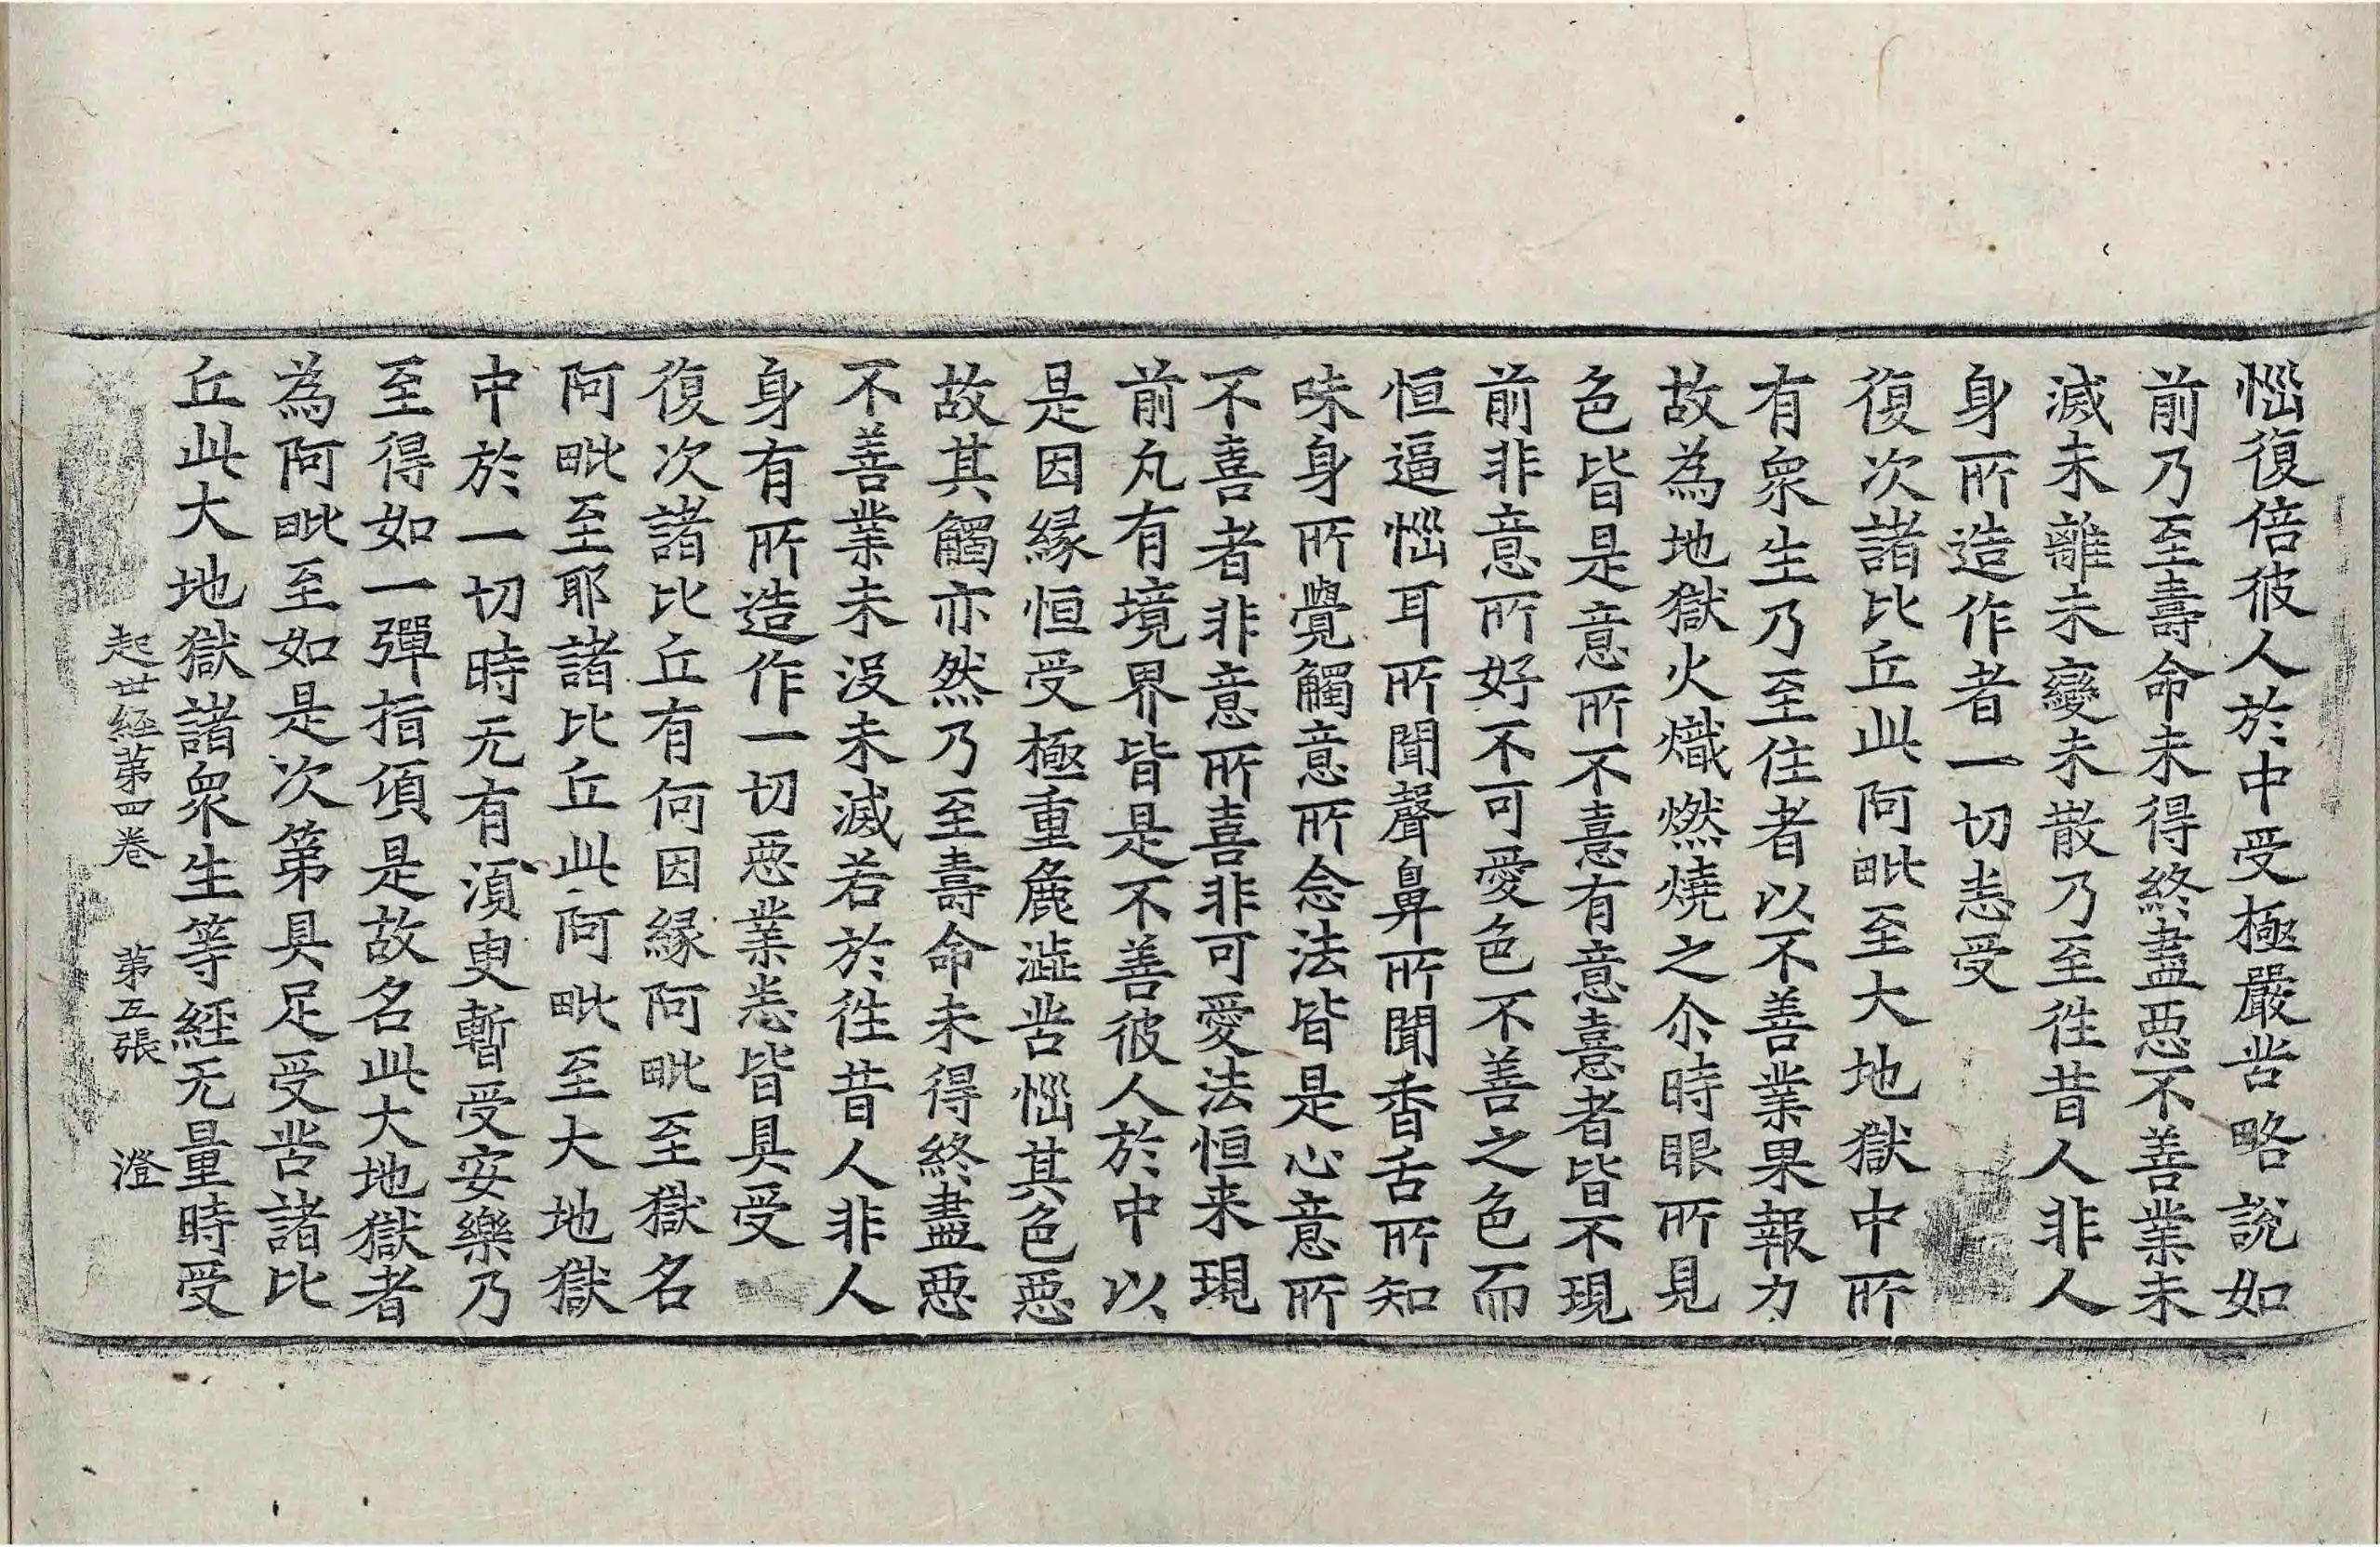 惱復倍彼人於中受極嚴苦略說如
前乃至壽命未得終盡惡不善業未
滅未離未變未散乃至徃昔人非人
身所造作者一切恙受
復次諸比丘此阿毗至大地獄中所
有衆生乃至住者以不善業果報力
故為地獄火熾燃燒之尒時眼所見
色皆是意所不憙有意憙者皆不現
前非意所好不可愛色不善之色而
恒逼惱耳所聞聲鼻所聞香舌所知
味身所覺觸意所念法皆是心意所
不喜者非意所喜非可愛法恒来現
前凡有境界皆是不善彼人於中以
是因緣恒受極重麁澁苦惱其色惡
故其觸亦然乃至壽命未得終盡惡
不善業未沒未滅若於徃昔人非人
身有所造作一切惡業恙皆具受
復次諸比丘有何因緣阿毗至獄名
阿毗至耶諸比丘此阿毗至大地獄
中於一切時无有湏臾暫受安樂乃
至得如一彈指傾是故名此大地獄者
為阿毗至如是次第具足受苦諸比
丘此大地獄諸衆生等經无量時受
起世經第四卷　第五張　澄